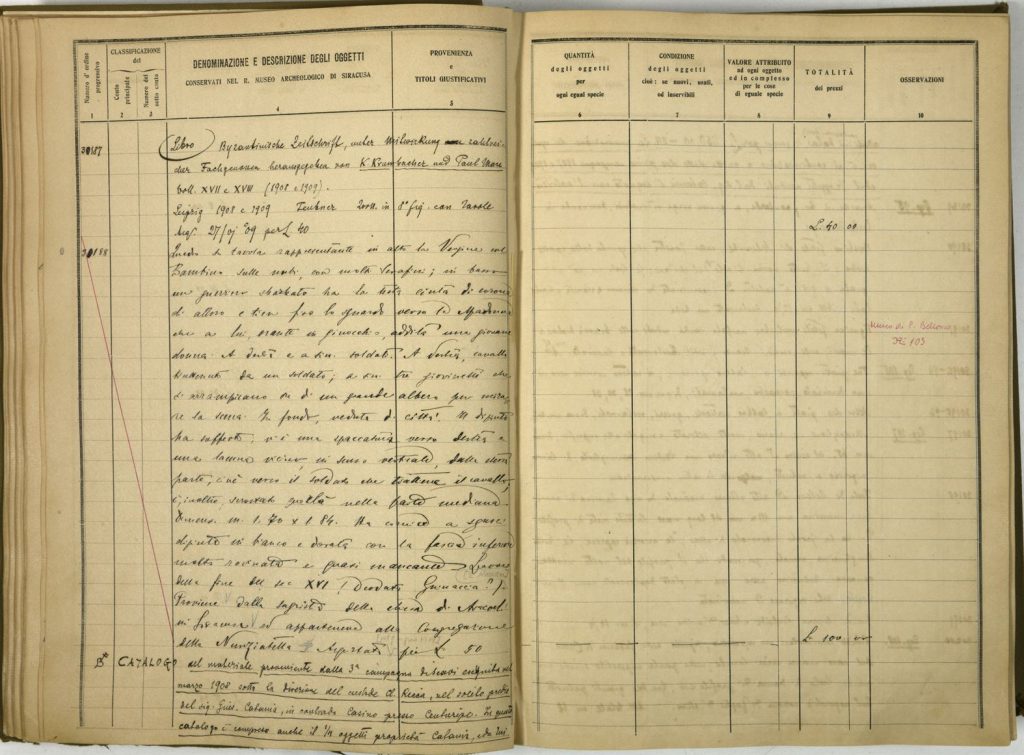 Numero d'ordine progressivo
CLASSIFICAZIONE
del
Conto principale
Numero del sotto conto
DENOMINAZIONE E DESCRIZIONE DEGLI OGGETTI
CONSERVATI NEL R. MUSEO ARCHEOLOGICO DI SIRACUSA
PROVENIENZA
e
TITOLI GIUSTIFICATIVI
1 2 3 4 5
30187 Libro Byzantinische Zeitschrift, unter Mitwirkung zahlrei-
cher Fachgenossen herausgegeben von K Krumbacher und Paul Marc
voll. XVII e XVIII (1908 e 1909).
Leipzig 1908 e 1909 Teubner 2 voll. in 8° fig. con tavole
27/ 09 per L 40
30188 su tavola rappresentante in alto la Vergine col
Bambino sulle nubi, con molti Serafini; in basso
un guerriero sbarbato ha la testa cinta di corona
di alloro e tien fiso lo sguardo verso la Madonna
che a lui, orante in ginocchio, addita una giovane
donna. A destra e a sin. soldati. A destra, cavallo
trattenuto da un soldato; a sin tre giovinetti che
si arrampicano su di un grande albero per mira-
re la scena. In fondo, veduta di città. Il dipinto
ha sofferto; v'è una spaccatura verso destra e
una vicino, in senso verticale, dalla stessa
parte, cioè verso il soldato che trattiene il cavallo;
è, inoltre, nella parte mediana.
Dimens. m. 1.70 x 1 84. Ha cornice a
dipinta in bianco e dorata con la fascia inferiore
molto rovinata e quasi mancante. Lavoro
della fine del sec XVI ! Deodato Guinaccia?
Proviene dalla sagrestia della chiesa di
in Siracusa ed apparteneva alla Congregazione
della Nunziatella per L. 50
B* CATALOGO
del materiale proveniente dalla 3ª campagna di scavi eseguita nel
marzo 1908 sotto la direzione del custode Cl. Ricca, nel solito predio
del sig. Gius. Catania, in contrada Casino presso Centuripe. In questo
catalogo è compreso anche il 1/4 oggetti proprietà Catania, da lui
QUANTITÀ
degli oggetti
per
ogni egual specie
CONDIZIONE
degli oggetti
cioè: se nuovi, usati,
od inservibili
VALORE ATTRIBUITO
ad ogni oggetto
ed in complesso
per le cose
di eguale specie
TOTALITÀ
dei prezzi
OSSERVAZIONI
6 7 8 9 10
L. 40 00
Museo di P. Bellomo
103
L 100 00